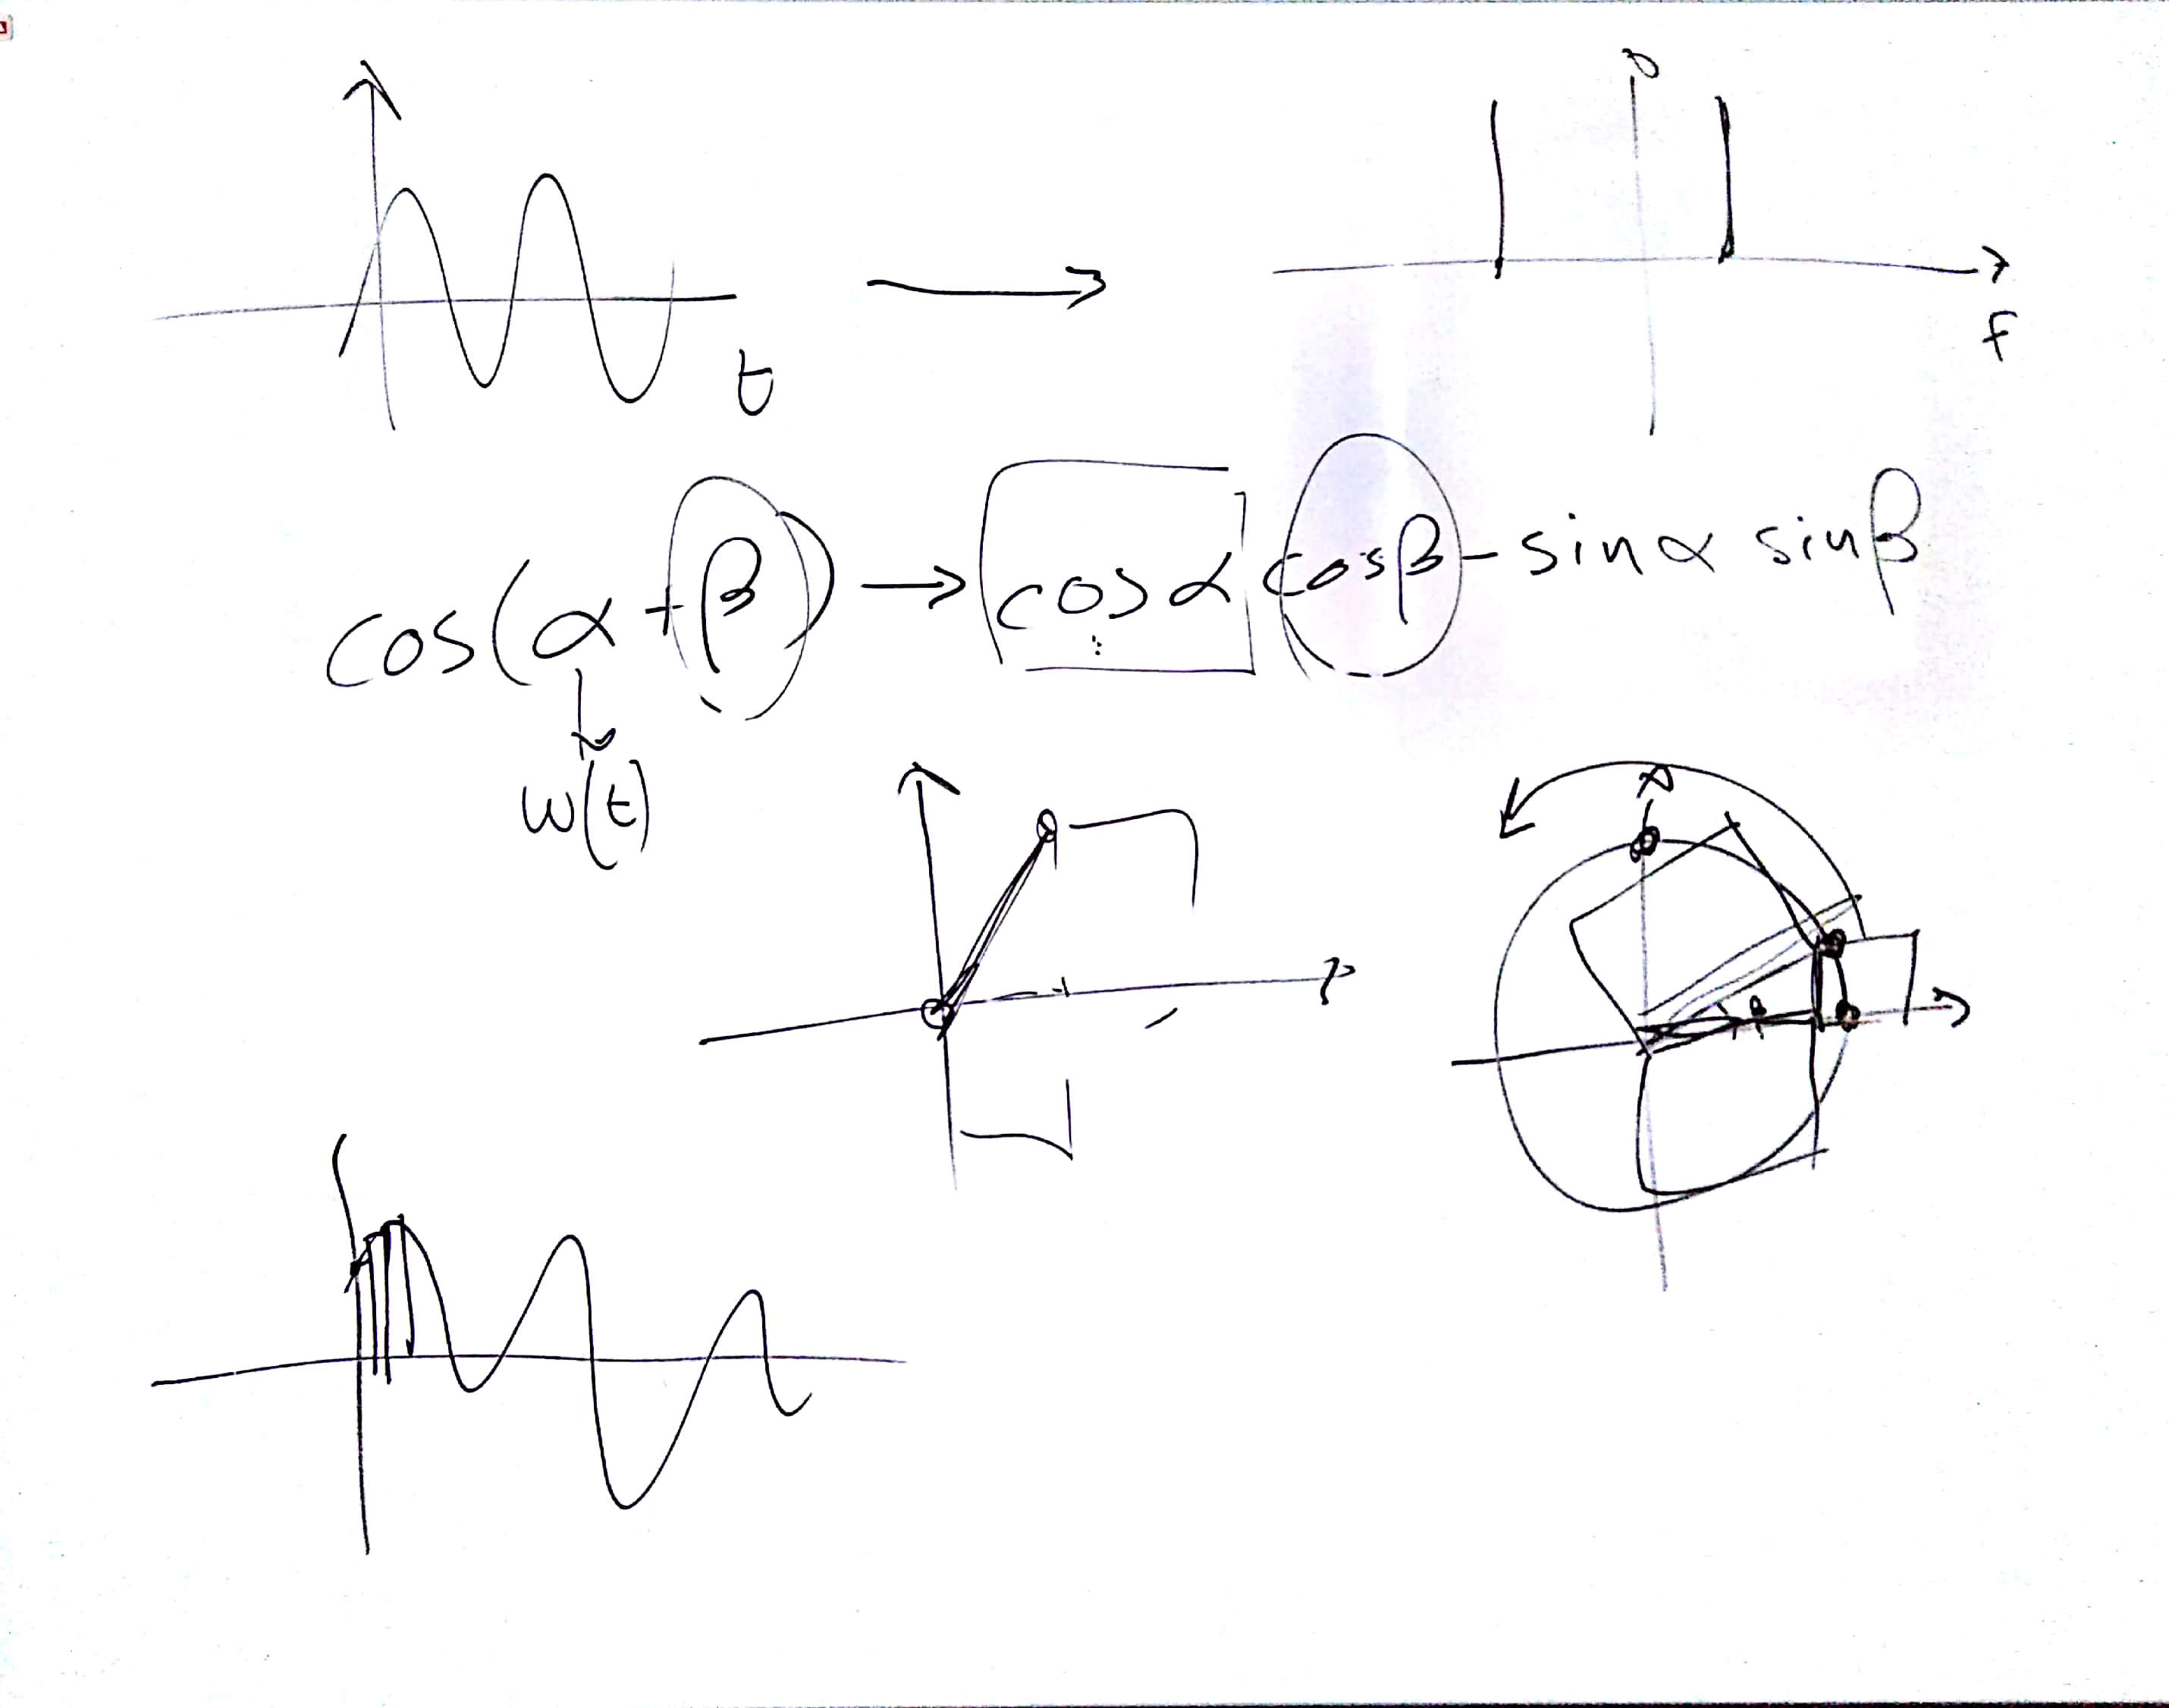 t
f
cos(α + β) → cosα cosβ - sinα sinβ
w(t)